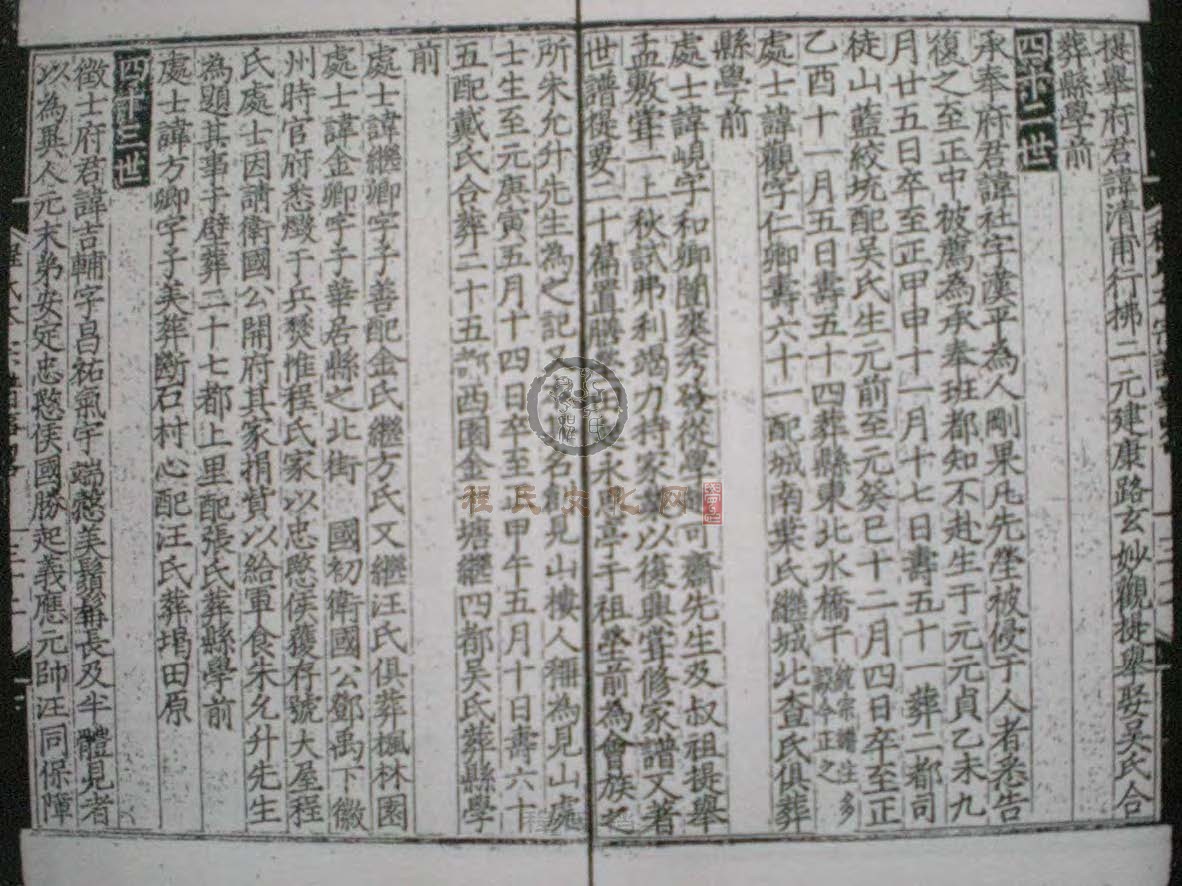 提舉府君諱清甫行拂二元建康路玄妙觀提舉娶吳氏合
葬縣學前
四十二世
承奉府君諱社字漢平為人剛果凡先塋被侵于人者悉告
復之至正中被薦為承奉班都知不赴生于元元貞乙未九
月廿五日卒至正甲申十一月十七日壽五十一葬二都司
徒山藍絞坑配吳氏生元前至元癸巳十二月四日卒至正
乙酉十一月五日壽五十四葬縣東北水橋干 宗譜生多誤今正之
處士諱觀字仁卿壽六十一配城南葉氏繼城北查氏俱葬
縣學前
處士諱峴字和卿闓爽秀發從學可齋先生及叔祖提舉
孟敷嘗一上秋試弗利竭力持家業以復興嘗修家譜又著
世譜提要二十篇置膳塋田永思亭于祖塋前為會族之
所朱允升先生為之記又創見山樓人稱為見山處
士生至元庚寅五月十四日卒至甲午五月十日壽六十
五配戴氏合葬二十五都西園金塘繼四都吳氏葬縣學
前
處士諱繼卿字子善配金氏繼方氏又繼汪氏俱葬楓林園
處士諱金卿字子華居縣之北街 國初衛國公鄧禹下徽
州時官府悉燬于兵焚惟程氏家以忠愍侯獲存號大屋程
氏處士因請衛國公開府其家捐貲以給軍食朱允升先生
為題其事于壁葬二十七都上里配張氏葬縣學前
處士諱方卿字子美葬斷石村心配汪氏葬塌田原
四十三世
徵士府君諱吉輔字昌祐氣宇端慤美鬚髯長及半體見者
以為異人元末弟安定忠愍侯國勝起義應元帥汪同保障
程氏文化网